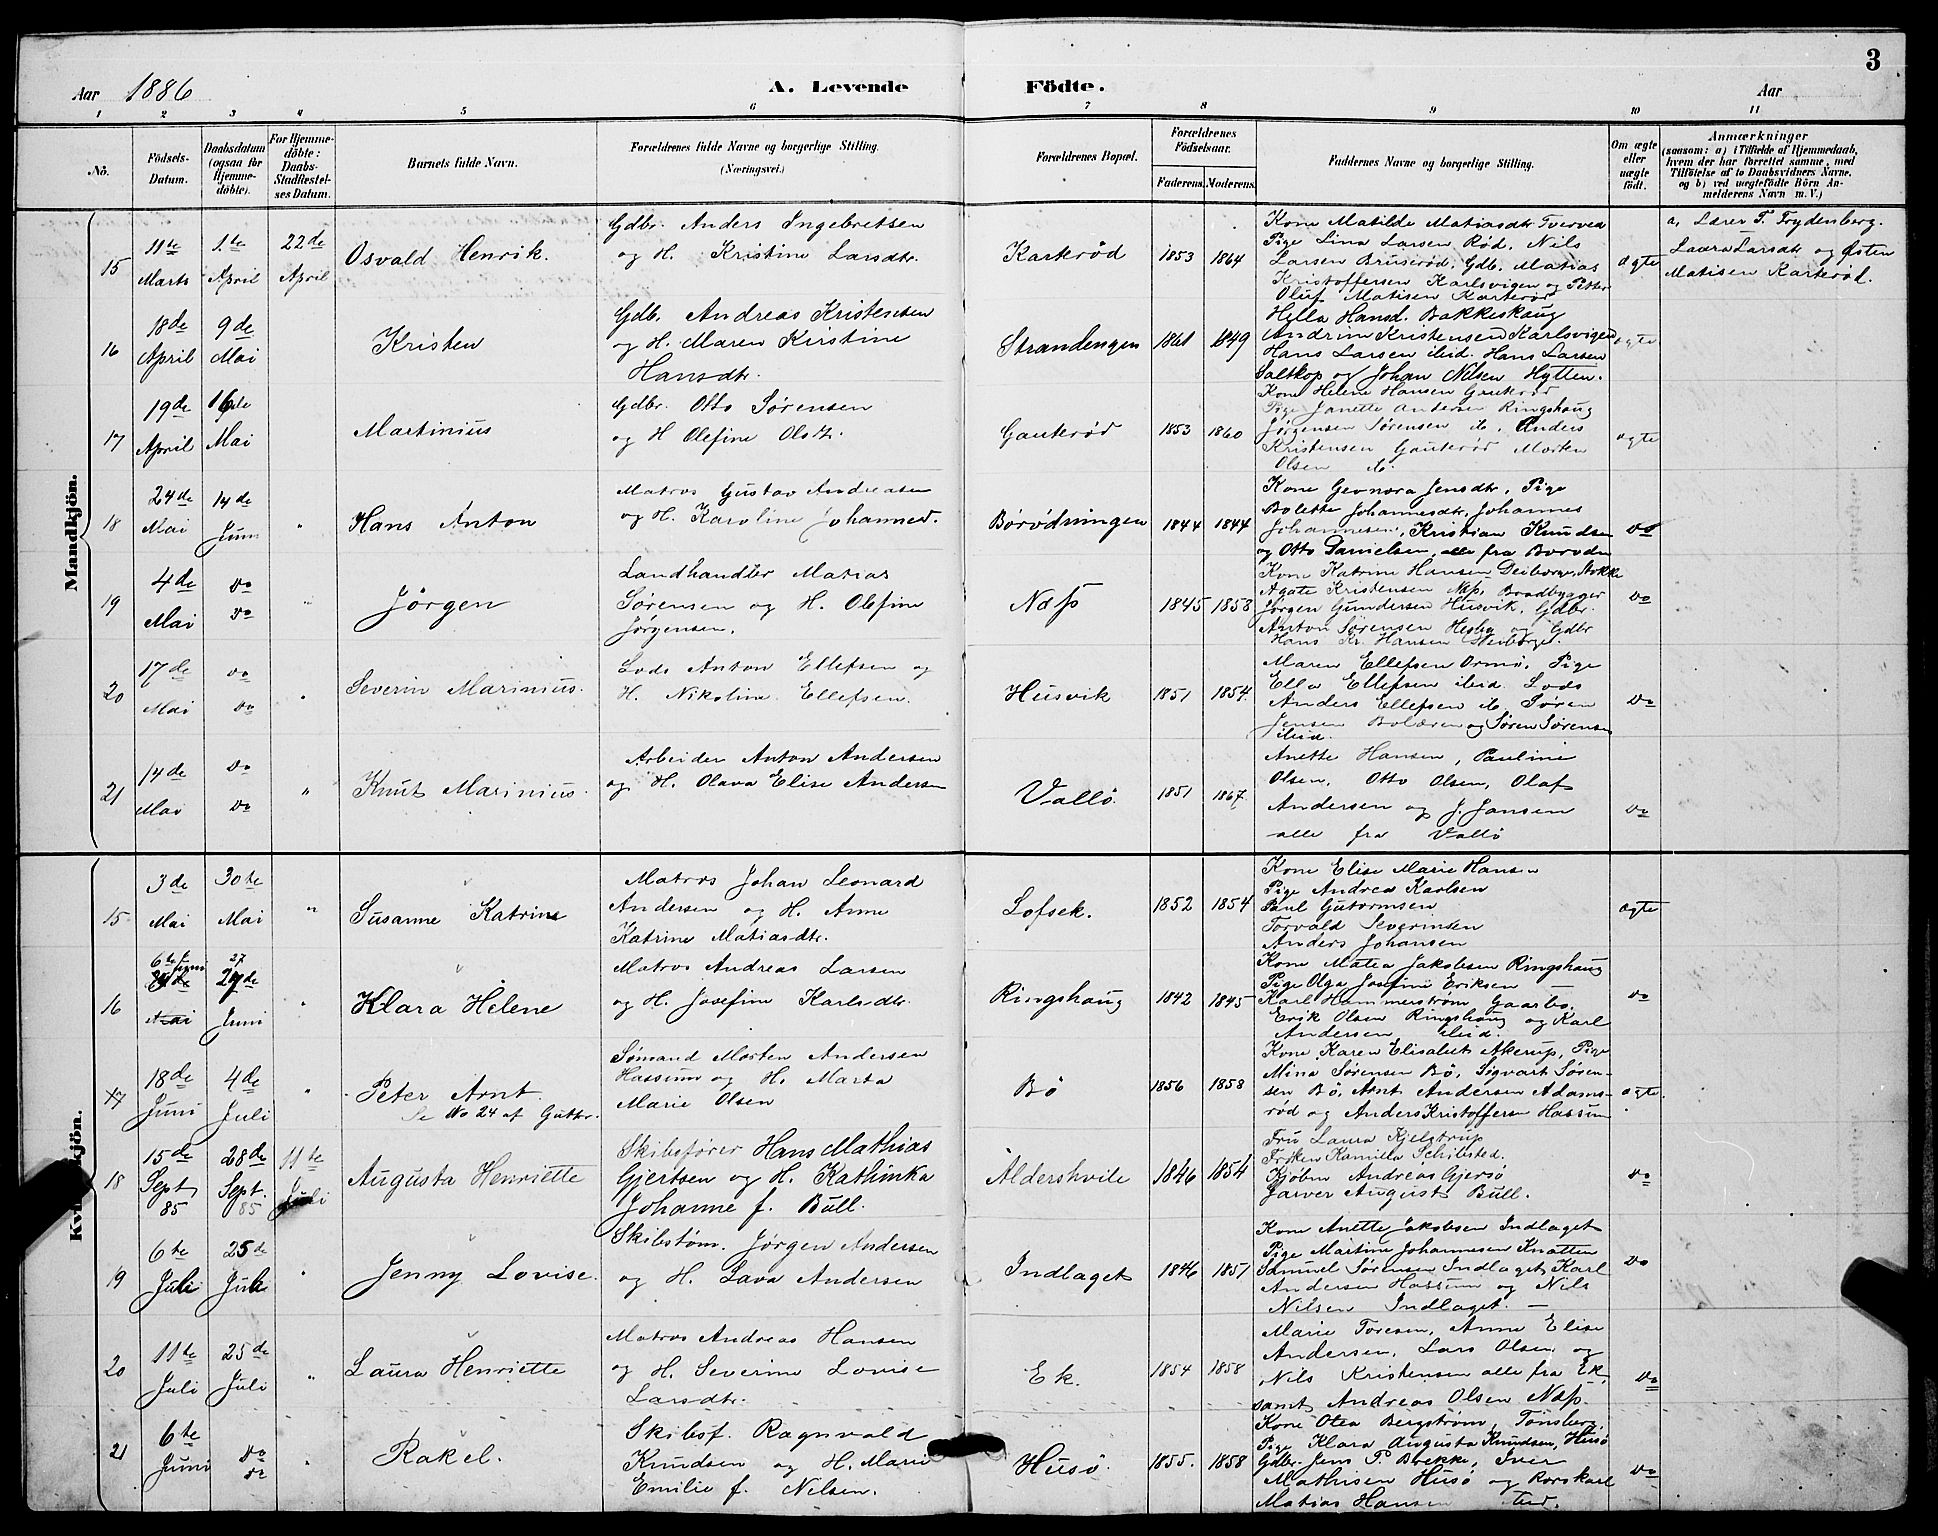 3
Aar 1886
A. Levende Födte.
Aar
1 2 3 4 5 6 7 8 9 10 11
Nô.
Födsels-Datum.
Daabsdatum (ogsaa for Hjemme-döbte).
For Hjemme-döbte: Daabs-Stadfæstel-ses Datum.
Barnets fulde Navn.
Forældrenes fulde Navne og borgerlige Stilling.
(Næringsvei.)
Forældrenes Bopæl.
Forældrenes Födselsaar.
Faderens. Moderens.
Faddernes Navne og borgerlige Stilling.
Om ægte eller uægte födt.
Anmærkninger
(saasom: a) i Tilfælde af Hjemmedaab, hvem der har forrettet samme, med Tilföielse af to Daabsvidners Navne, og b) ved uægtefödte Börn An-melderens Navn m. V.)
Mandkjön.
15 11te Marts 1.te April 22de April
Osvald Henrik.
Gdbr. Anders Ingebretsen
og H. Kristine Larsdtr.
Karterød 1853 1864
Kone Matilde Matiasdtr Tverved
Pige Lina Larsen Rød, Nils
Larsen Bruserød, Gdb. Matias
Kristoffersen Karlsvigen og Petter
Oluf Matisen Karterød
ægte
a, Lærer T. Frydenberg.
Laura Larsdtr og Østen
Matisen Karterød.
16 18de April 9de Mai
Kristen
Gdb. Andreas Kristensen
og H. Maren Kirstine
Hansdtr.
Strandengen 1861 1849
Hella Hansd. Bakkeskaug
Andrine Kristensen Karlsvigen
Hans Larsen ibid. Hans Larsen
Saltkop og Johan Nilsen Hytten.
ægte
17 19de April 16de Mai
Martinius
Gdbr. Otto Sørensen
og H Olefine Olsdtr.
Gauterød 1853 1860
Kone Helene Hansen Gauterød
Pige Janette Andersen Ringshaug
Jørgensen Sørensen do, Anders
Kristensen Gauterød Morten
Olsen do.
ægte
18 24de Mai 14de Juni "
Hans Anton
Matros Gustav Andreasen
og H. Karoline Johannesd.
Børødningen 1844 1844
Kone Gevnora Jensdtr, Pige
Bolette Johannesdtr, Johannes
Johannesen, Kristian Knudsen
og Otto Danielsen, alle fra
do
19 4de Mai do do "
Jörgen
Landhandler Matias
Sørensen og H. Olefine
Jørgensen.
Næss 1845 1853
Kone Katrine Hansen Stokke
Agate Kristensen Næss, Baadbygger
Jørgen Gundersen Husvik, Gdbr.
Anton Sørensen Hesby og Gdbr
Hans Kr. Hansen
do
20 17de Mai do do "
Severin Marinius.
Lods Anton Ellefsen og
H. Nikoline Ellefsen.
Husvik 1851 1854
Maren Ellefsen Ormø, Pige
Ella Ellefsen ibid. Lods
Anders Ellefsen do Søren
Jensen Bolæren og Søren Sørensen
ibid.
do
21 14de Mai do do "
Knut Marinius.
Arbeider Anton Andersen
og H. Olava Elise Andersen
Vallö. 1851 1867
Anette Hansen, Pauline
Olsen, Otto Olsen, Olaf
Andersen og J. Jansen
alle fra Vallö
do
Kvindekjön.
15 3de Mai 30te Mai "
Susanne Katrine
Matros Johan Leonard
Andersen og H. Anne
Katrine Matiasdtr.
Lofsek. 1852 1854
Kone Elise Marie Hansen
Pige Andrea Karlsen
Paul Gutormsen
Torvald Severinsen
Anders Johansen
ægte
16 6te Juni Mai 27 de Juni "
Klara Helene
Matros Andreas Larsen
og H. Josefine Karlsdtr.
Ringshaug 1842 1845
Kone Matea Jakobsen Ringshaug
Pige Olga Josefine Eriksen —
Karl Hammerstrøm Gaarbo,
Erik Olsen Ringshaug og Karl
Andersen ibid.
do
17 18de Juni 4de Juli "
Peter Arnt.
Se No 24 af Gutter.
Sømand Morten Andersen
Hassum og H. Marta
Marie Olsen
Bö 1856 1858
Kone Karen Elisabet Akerup, Pige
Mina Sørensen Bö, Sigvart Søren-
sen Bö, Arnt Andersen Adams-
rød og Anders Kristoffersen Hassum
ægte.
18 15de Sept 85 28de Sept. 85 11te Juli
Augusta Henriette
Skibsfører Hans Mathias
Gjertsen og H. Kathinka
Johanne f. Bull.
Aldershvile 1846 1854
Fru Laura Kjelstrup
Frøken Kamilla Schibsted.
Kjøbm Andreas Gjersø
Farver August Bull.
do
19 6te Juli 25de Juli "
Jenny Lovise.
Skibstøm. Jørgen Andersen
og H. Lava Andersen
Indlaget 1846 1851
Kone Anette Jakobsen Indlaget
Pige Martine Johannesen Knatten
Samuel Sørensen Indlaget, Karl
Andersen Hassum og Nils
Nilsen Indlaget. —
do
20 11te Juli 25de Juli "
Laura Henriette
Matros Andreas Hansen
og H. Severine Lovise
Larsdtr.
Ek. 1854 1858
Marie Toresen, Anne Elise
Andersen, Lars Olsen og
Nils Kristensen alle fra Ek,
samt Andreas Olsen Næss.
do
21 6te Juni do do "
Rakel.
Skibsf. Ragnvald
Knudsen og H. Marie
Emilie f. Nilsen.
Husö. 1855. 1858
Kone Olea Bergstrøm, Tønsberg,
Pige Klara Augusta Knudsen, Husö
Gdbr. Jens P. Brekke, Iver
Mathisen Husö og Rorskarl
Matias Hansen ibid.
do